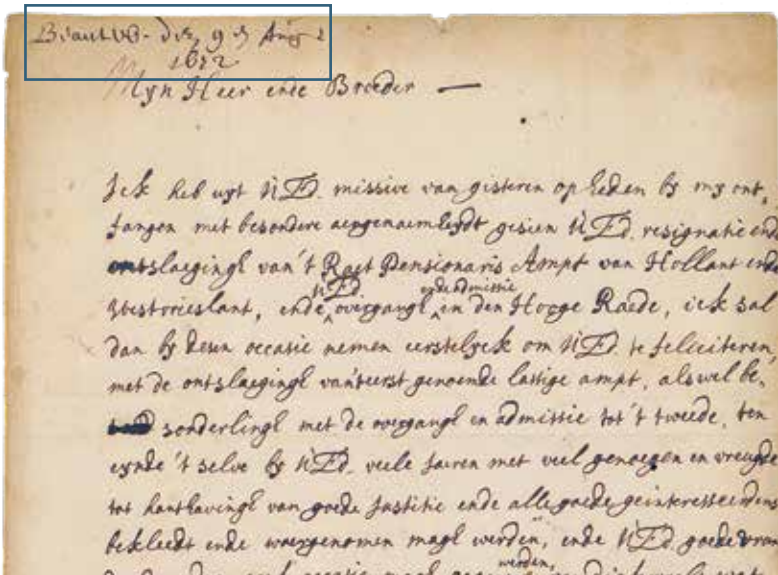 Beantwd. den 9 Aug
1672
Myn Heer ende Broeder —
Ick heb uyt UEd. missive van gisteren op heden by my ont,
fangen met besondere aengenaemheydt gesien UEd. resignatie ende
ontslaegingh van't Raet Pensionaris Ampt van Hollant ende
UEd. ende admissie
Westvrieslant, ende overgangh in den Hooge Raede, ick sal
dan by desen occasie nemen eerstelyck om UEd. te feliciteren
met de ontslaegingh van't eerst genoemde lastige ampt, als wel be,
sonderlingh met de overgangh en admissie tot 't tweede, ten
eynde 't selve by UEd. veele jaeren met veel genoegen en vreugde
tot hanthavingh van goede justitie ende alle goede geinteresseerdens
bekleedt ende waergenomen magh werden, ende UEd. goede
werden,
occasie magh